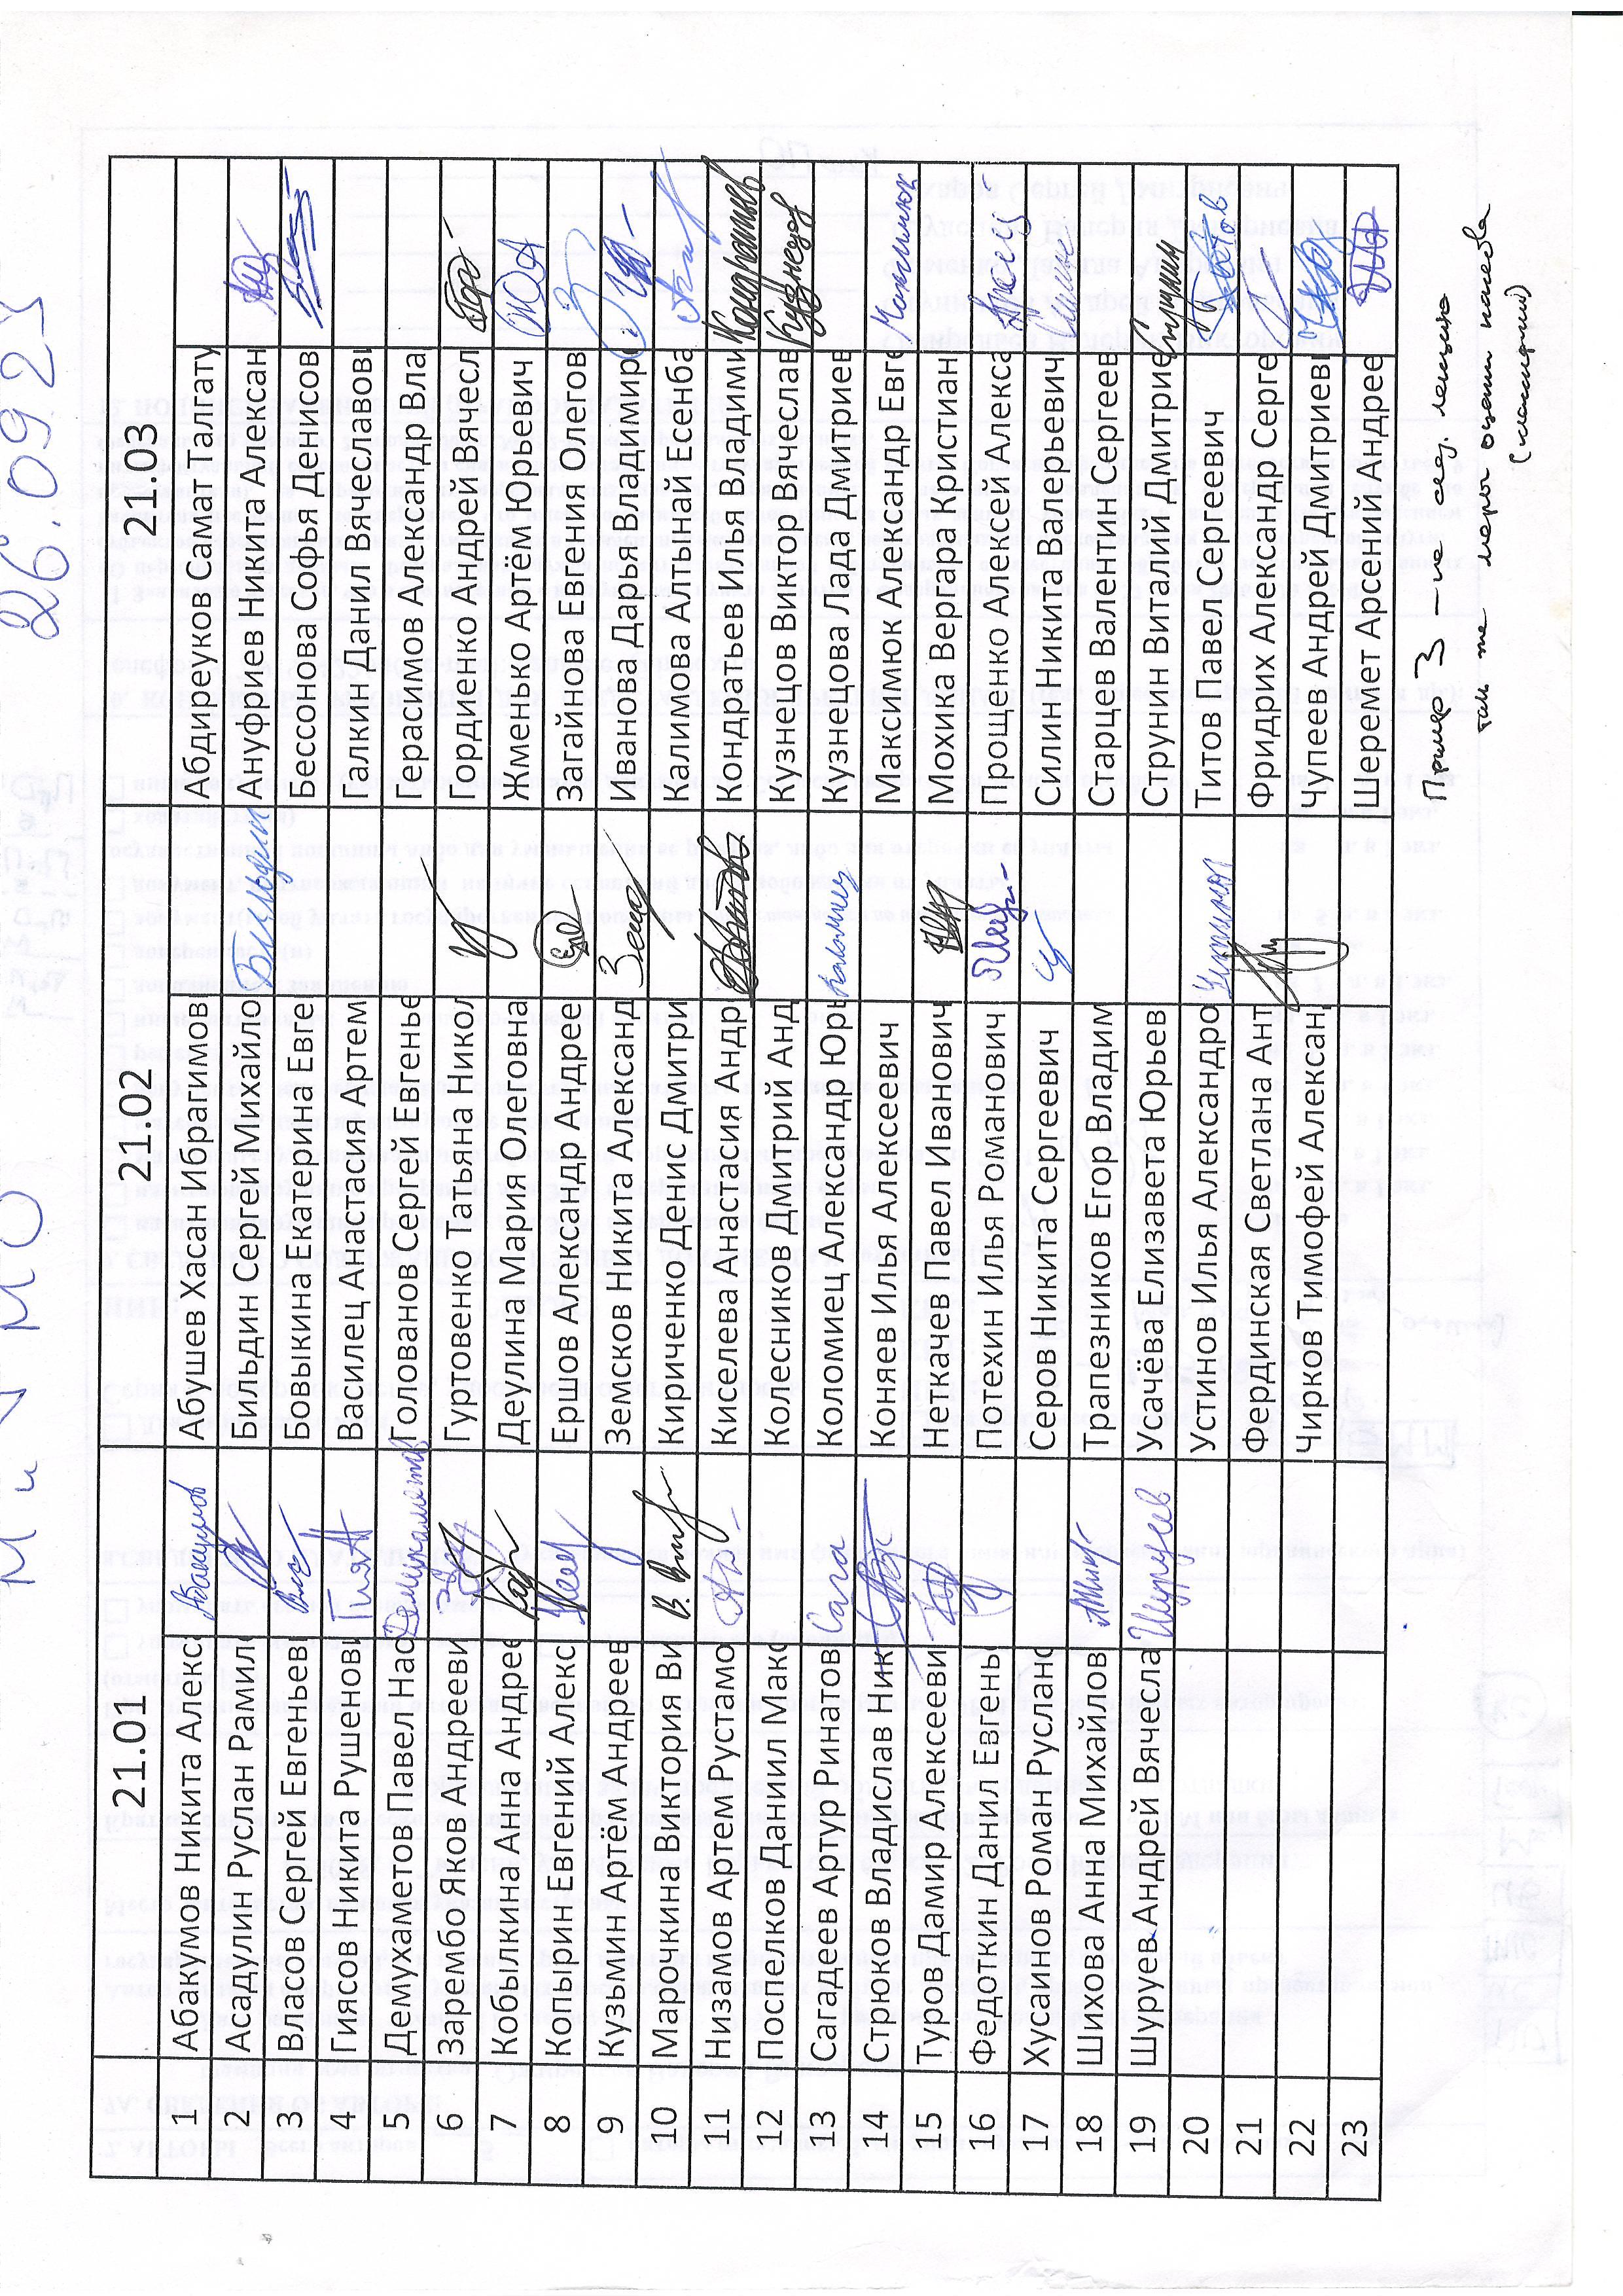 М и МО 26.0923
21.01 21.02 21.03
1 Абакумов Никита Алекса Абакумов Абушев Хасан Ибрагимов Абдиреуков Самат Талгату
2 Асадулин Руслан Рамил Бильдин Сергей Михайло Бильдин Ануфриев Никита Алексан
3 Власов Сергей Евгеньев Бовыкина Екатерина Евге Бессонова Софья Денисов
4 Гиясов Никита Рушенов Василец Анастасия Артем Галкин Данил Вячеславов
5 Демухаметов Павел Нас Демухаметов Голованов Сергей Евгенье Герасимов Александр Вла
6 Зарембо Яков Андрееви Гуртовенко Татьяна Никол Гордиенко Андрей Вячесл
7 Кобылкина Анна Андрее Деулина Мария Олеговна Жменько Артём Юрьевич ЖА
8 Копырин Евгений Алекс Ершов Александр Андрее Загайнова Евгения Олегов
9 Кузьмин Артём Андреев Земсков Никита Александ Иванова Дарья Владимир
10 Марочкина Виктория Ви Кириченко Денис Дмитри Калимова Алтынай Есенба
11 Низамов Артем Рустамо Киселева Анастасия Андр Кондратьев Илья Владими Кондратьев
12 Поспелков Даниил Макс Колесников Дмитрий Анд Кузнецов Виктор Вячеслав Кузнецов
13 Сагадеев Артур Ринатов Сага Коломиец Александр Юрь Коломиец Кузнецова Лада Дмитриев
14 Стрюков Владислав Ник Коняев Илья Алексеевич Максимюк Александр Евге Максимюк
15 Туров Дамир Алексееви Неткачев Павел Иванович Мохика Вергара Кристиан
16 Федоткин Данил Евгень Потехин Илья Романович Прощенко Алексей Алекса
17 Хусаинов Роман Руслано Серов Никита Сергеевич Силин Никита Валерьевич Силин
18 Шихова Анна Михайлов Трапезников Егор Владим Старцев Валентин Сергеев
19 Шуруев Андрей Вячесла Шуруев Усачёва Елизавета Юрьев Струнин Виталий Дмитрие Струнин
20 Устинов Илья Александро Устинов Титов Павел Сергеевич Титов
21 Фердинская Светлана Ант Фридрих Александр Серге
22 Чирков Тимофей Алексан Чупеев Андрей Дмитриев
23 Шеремет Арсений Андрее
Пример 3 – на след. лекцию
там же меры оценки качества